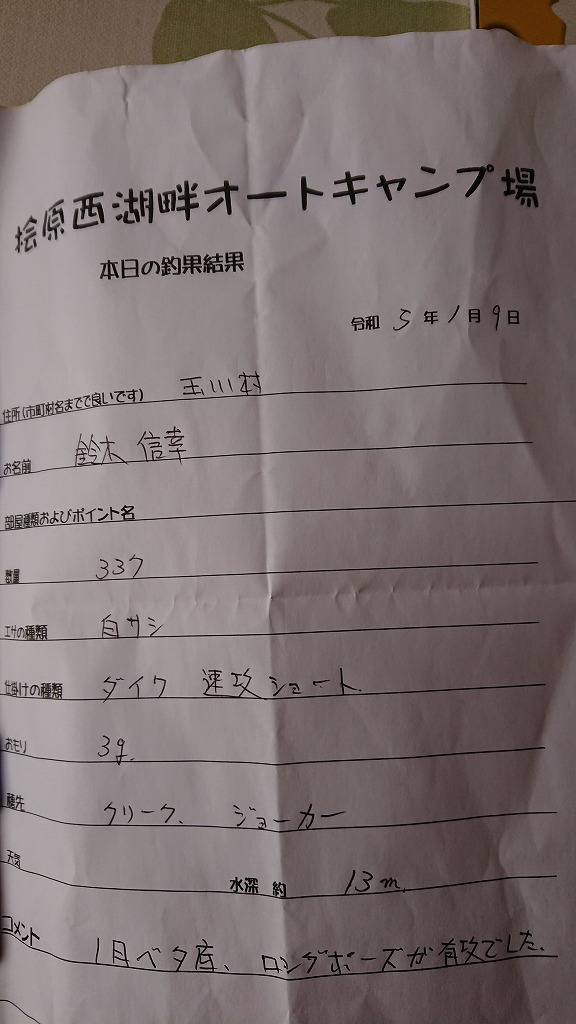 桧原西湖畔オートキャンプ場
本日の釣果結果
令和 5 年 1 月 9 日
住所(市町村名までで良いです) 玉川村
お名前 鈴木 信幸
部屋種類およびポイント名
数量 337
エサの種類 白サシ
仕掛けの種類 ダイワ 速攻ショート
おもり 3g.
穂先 クリーク、 ジョーカー
天気 水深 約 13m.
コメント 1日ベタ底、ロングポーズが有攻でした.